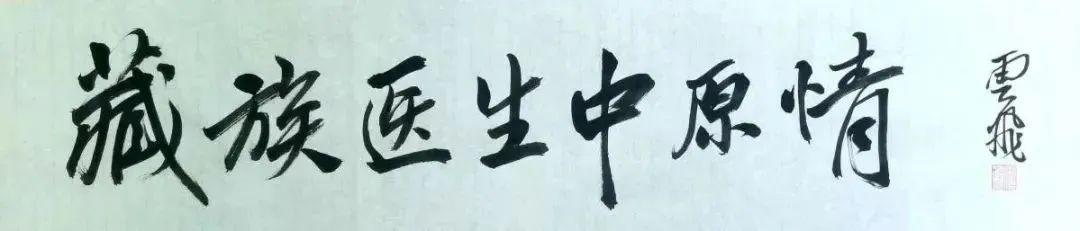 藏族医生中原情
雲飛